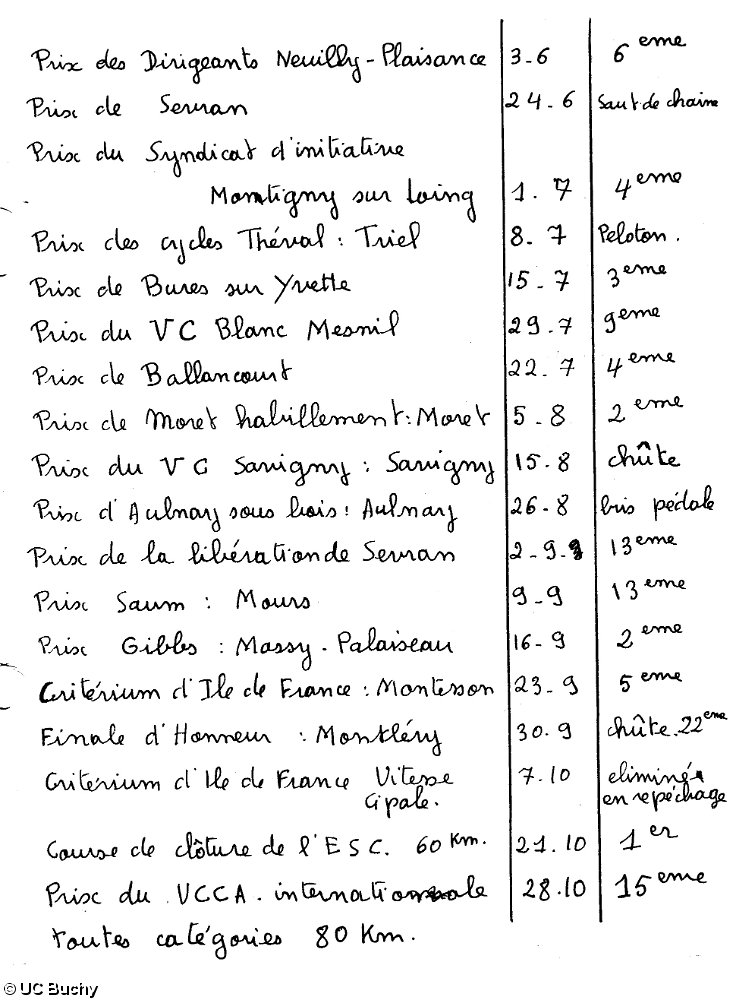 Prix des Dirigeants Neuilly-Plaisance 3-6 6 eme
Prix de Sevran 24-6 saut de chaine
Prix du Syndicat d'initiative
Montigny sur Loing 1.7 4 eme
Prix des cycles Théval : Triel 8.7 Peloton.
Prix de Bures sur Yvette 15-7 3 eme
Prix du VC Blanc Mesnil 29.7 9 eme
Prix de Ballancourt 22.7 4 eme
Prix de Moret habillement : Moret 5-8 2 eme
Prix du VC Savigny : Savigny 15.8 chûte
Prix d'Aulnay sous bois : Aulnay 26-8 bris pédale
Prix de la libération de Sevran 2-9 13 eme
Prix Saum : Mours 9-9 13 eme
Prix Gibbs : Massy-Palaiseau 16-9 2 eme
Critérium d'Ile de France : Montesson 23.9 5 eme
Finale d'Honneur : Montléry 30.9 chûte.22 eme
Criterium d'Ile de France Vitesse 7.10 eliminé
Cipale. en repéchage
Course de clôture de l'ESC. 60 Km. 21.10 1 er
Prix du VCCA. internationale 28.10 15 eme
toutes catégories 80 Km.
© UC Buchy